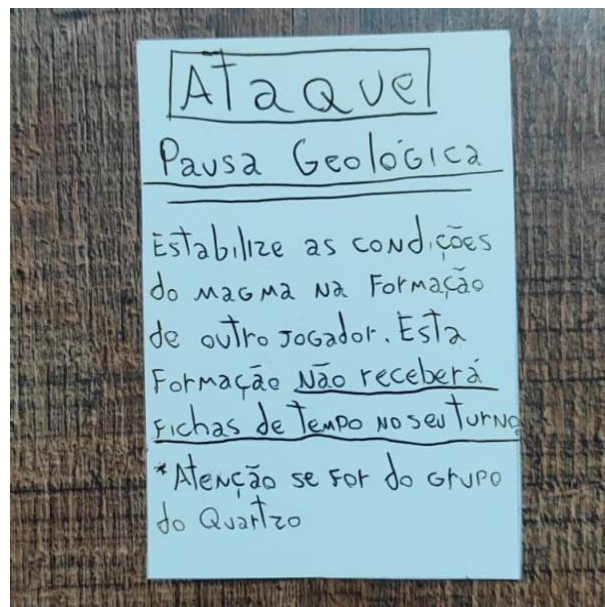 Ataque
Pausa Geológica
Estabilize as condições
do magma na Formação
de outro jogador. Esta
Formação não receberá
fichas de tempo no seu turno
*Atenção se for do grupo
do Quartzo